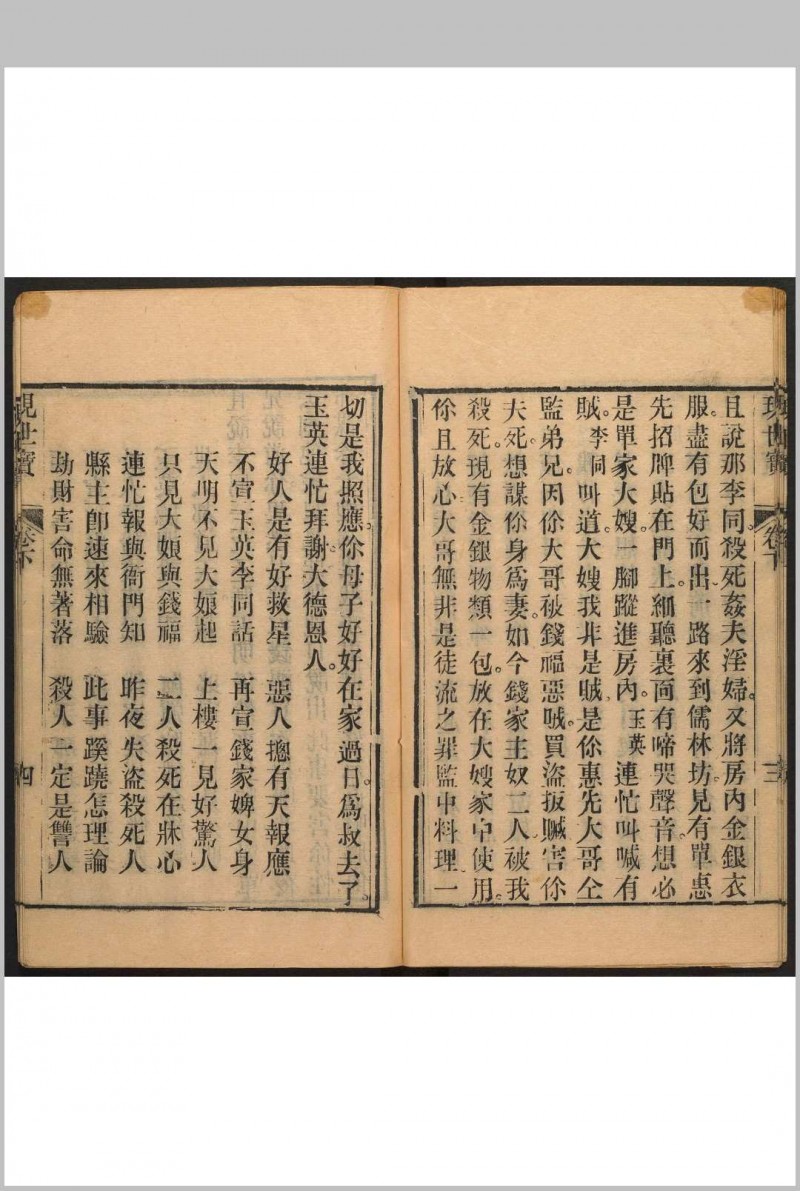 現世寶 卷下 三
且說那李同。殺死姦夫淫婦。又將房內金銀衣
服。盡有包好而出。一路來到儒林坊。見有單惠
先招牌貼在門上。細聽裏面有啼哭聲音。想必
是單家大嫂。一腳蹤進房內。玉英連忙叫喊有
賊。李同叫道大嫂我非是賊。是你惠先大哥仝
監弟兄。因你大哥被錢福惡賊。買盜扳贓害你
夫死。想謀你身爲妻。如今錢家主奴二人被我
殺死。現有金銀物類一包。放在大嫂家中使用。
你且放心大哥無非是徒流之罪監中料理一
切是我照應。你母子好好在家過日。爲叔去了。
玉英連忙拜謝。大德恩人。
好人是有好救星 惡人摠有天報應
不宣玉英李同話 再宣錢家婢女身
天明不見大娘起 上樓一見好驚人
只見大娘與錢福 二人殺死在牀心
連忙報與衙門知 昨夜失盜殺死人
縣主卽速來相驗 此事蹊蹺怎理論
劫財害命無著落 殺人一定是讐人
現世寶 卷下 四